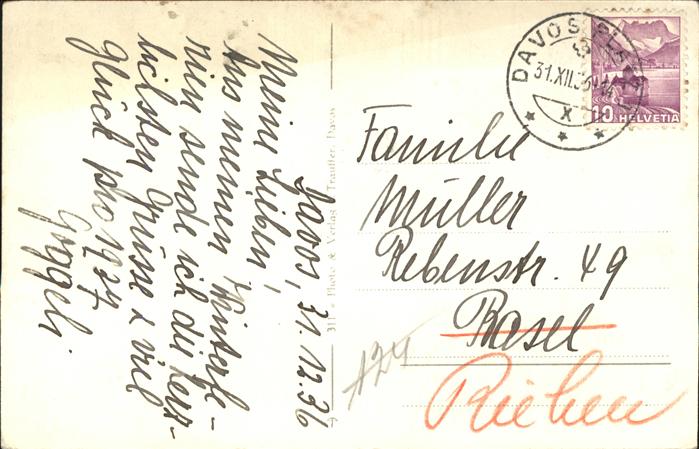 Davos, 31.12.36
Meine Lieben,
Aus meinen Winterfe-
rien sende ich die herz-
lichsten Grüsse & viel
Glück pro 1937
Photo & Verlag Trauffer, Davos
DAVOS PLATZ
31.XII.36
X
10 HELVETIA
Familie
Müller
Rebenstr. 49
Basel
Riehen